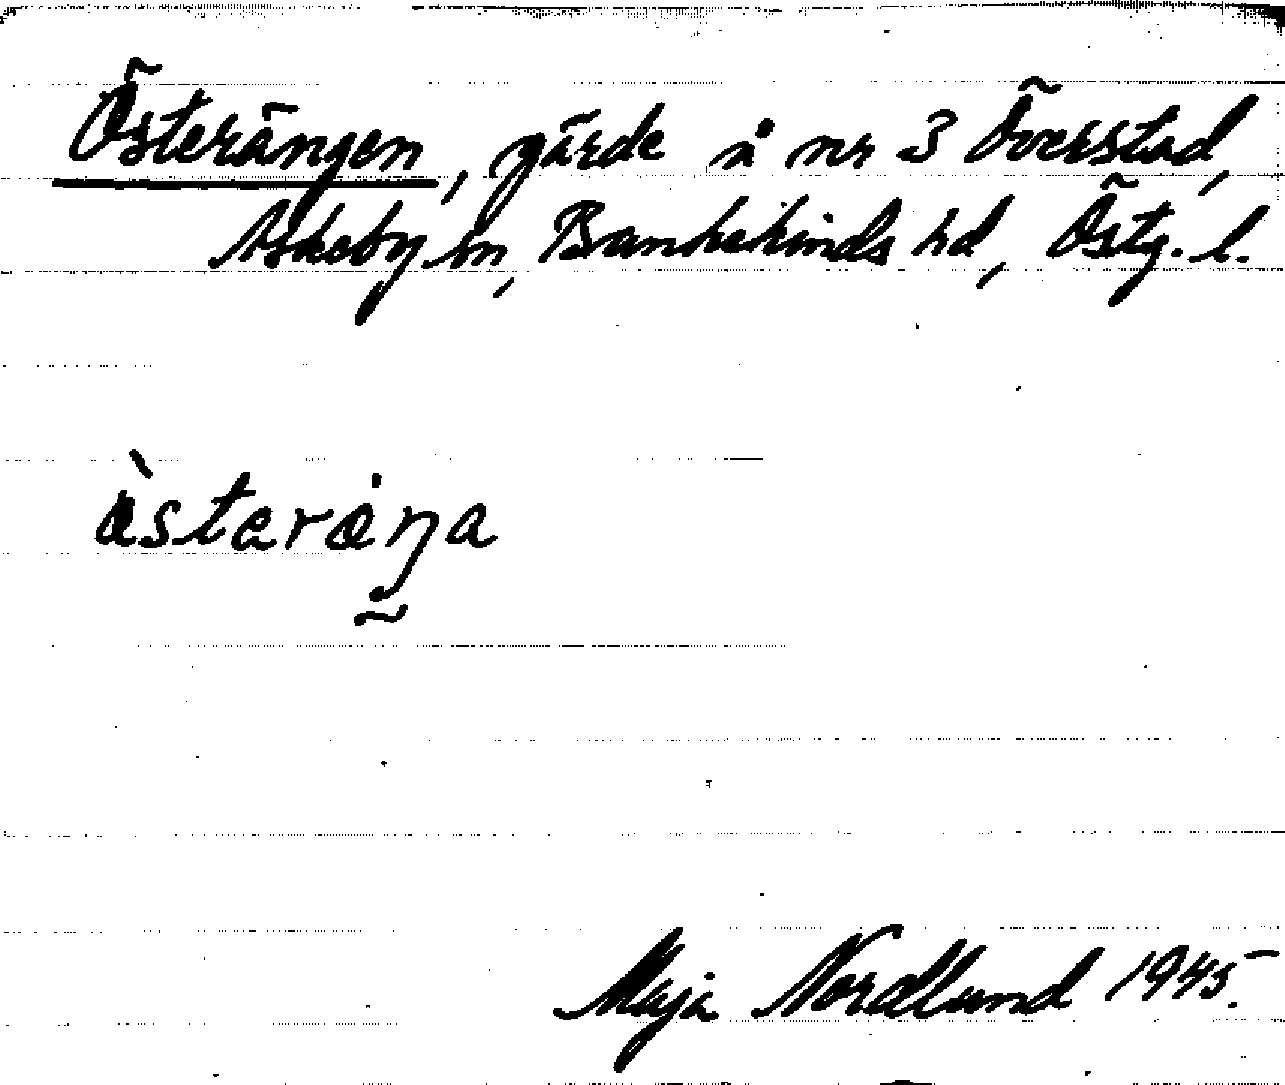 Österängen, gärde å nr 3 Överstad,
Askeby sn, Bankekinds hd, Östg. l.
ὰsteràŋa
Maja Nordlund 1945.